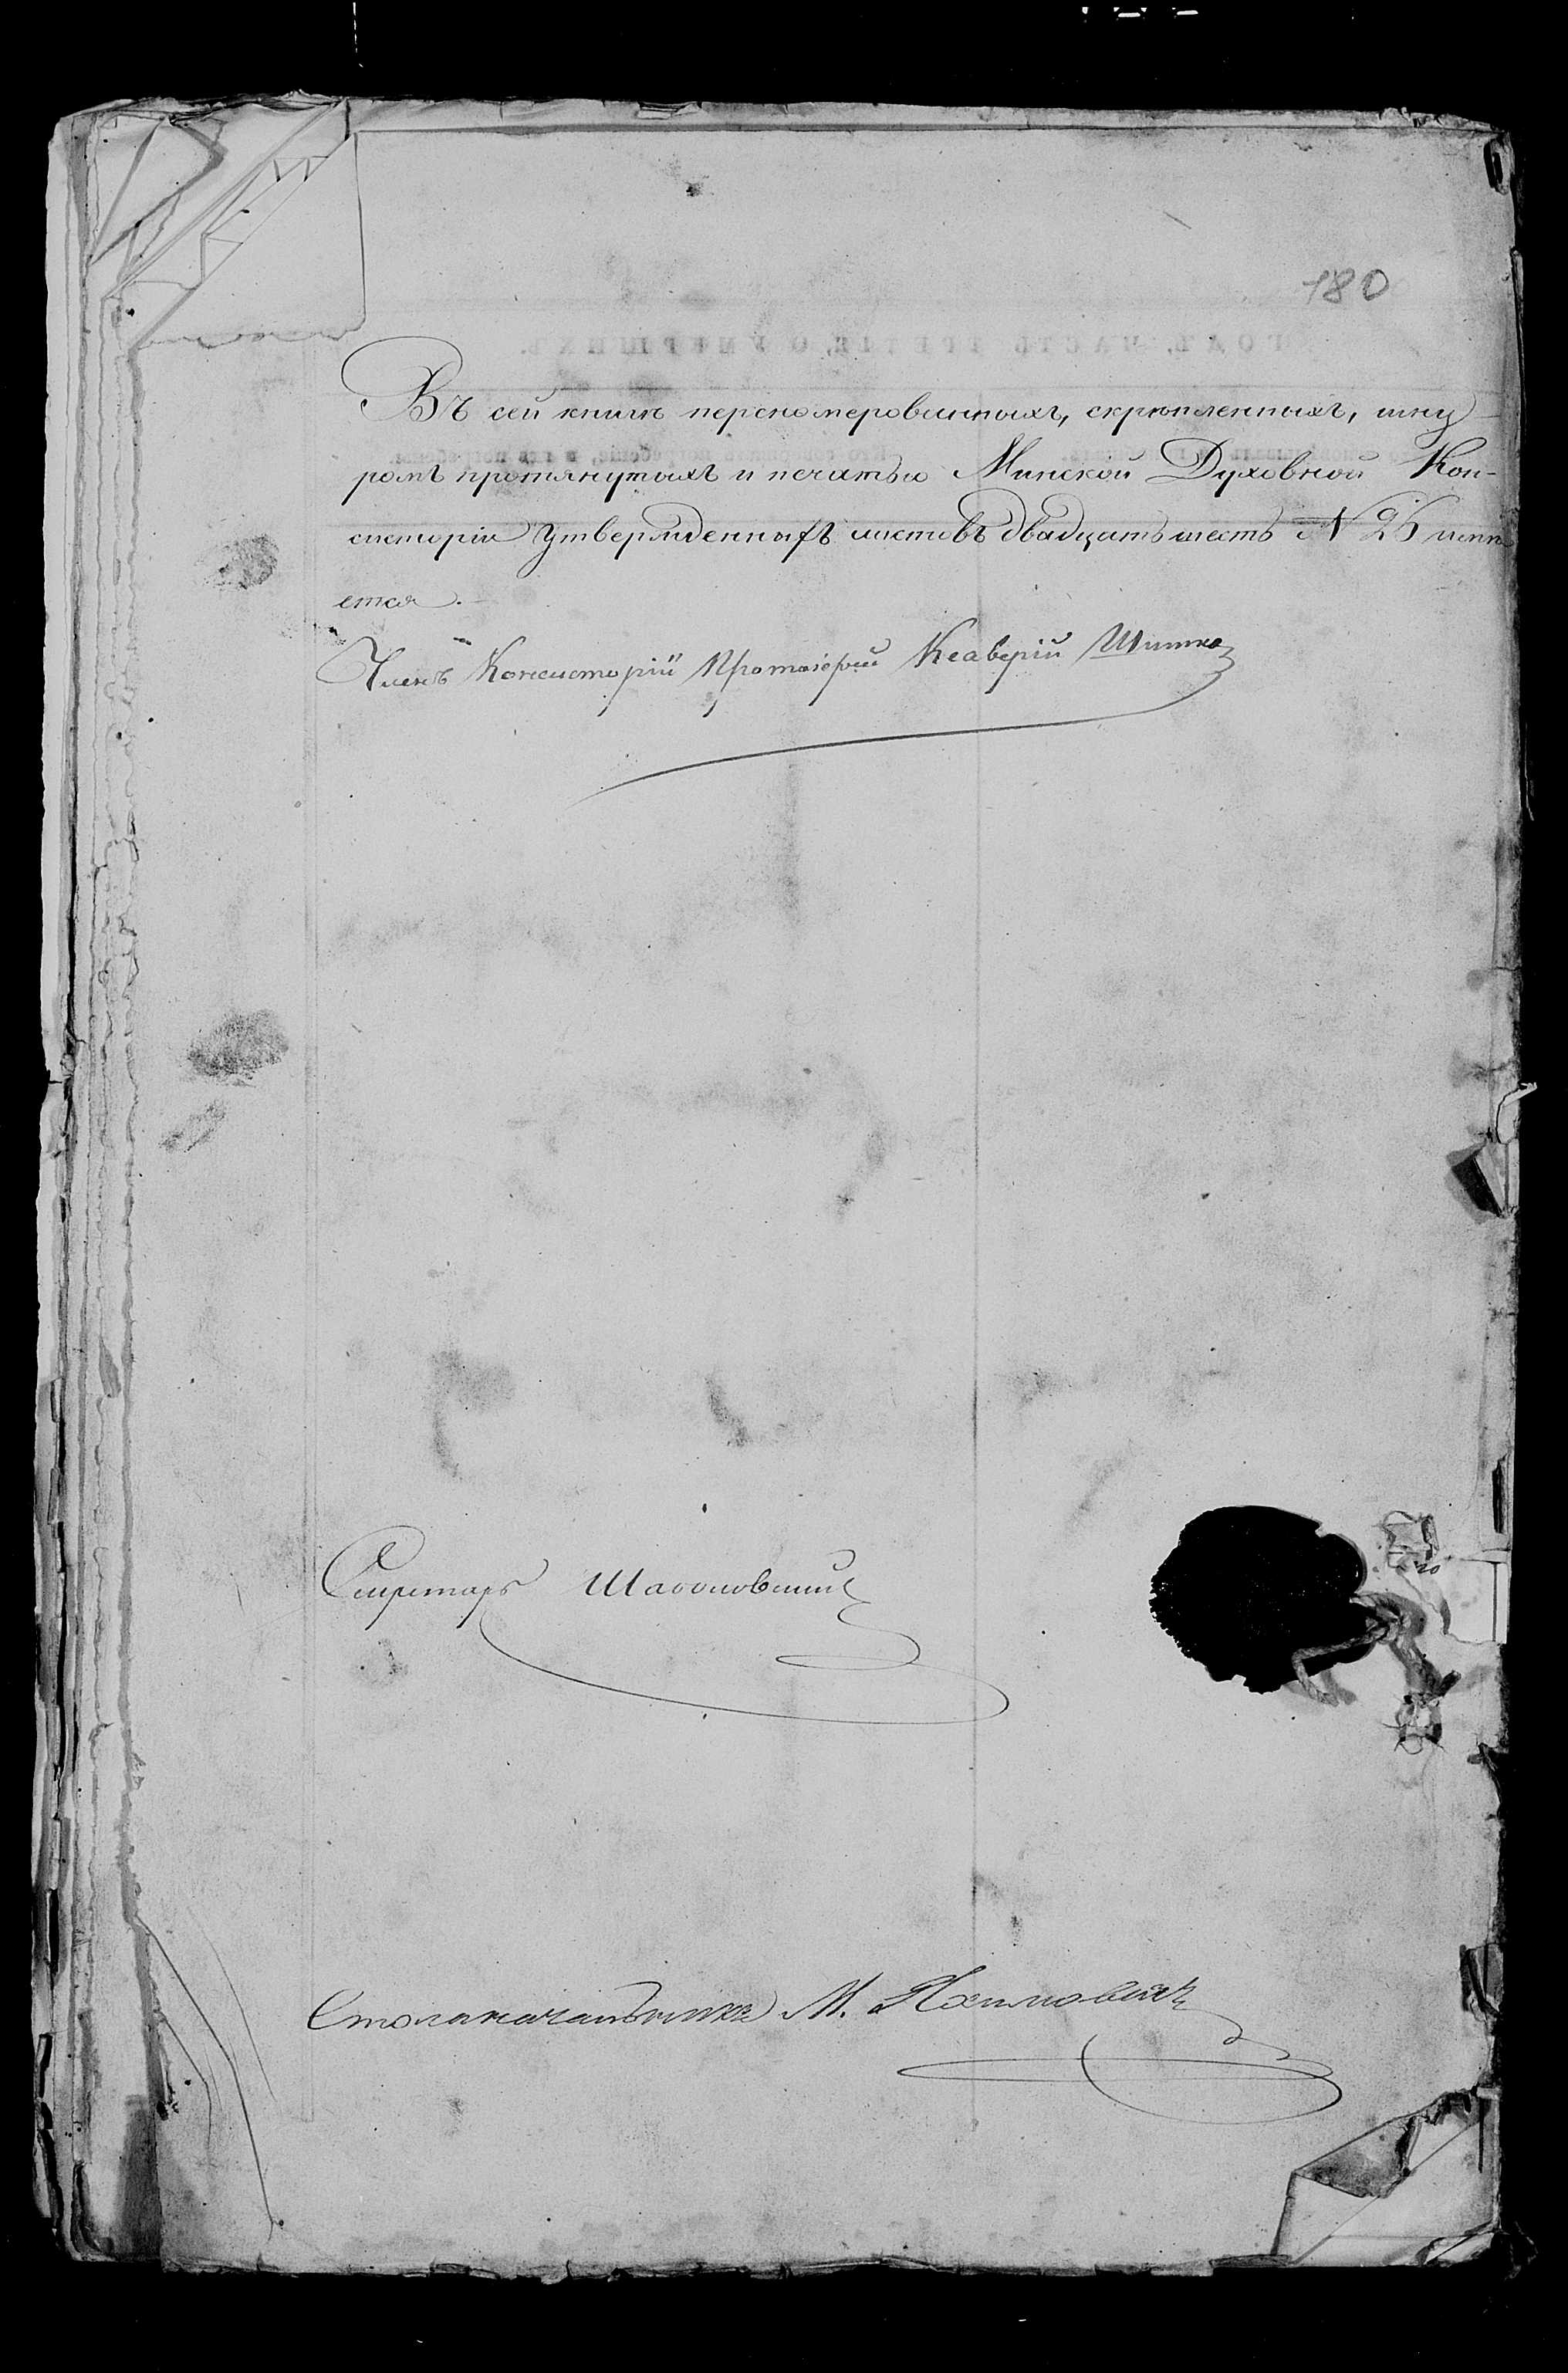 180
Въ сей книгѣ перенумерованныхъ, скрѣпленныхъ, шну-
ромъ протянутыхъ и печатью Минской Духовной Кон-
систоріи утвержденныхъ листовъ двадцать шесть N 26
ется.
Членъ Консисторіи Протоіерей Ксаверій Шитко
Секретарь
Столоначальникъ М.